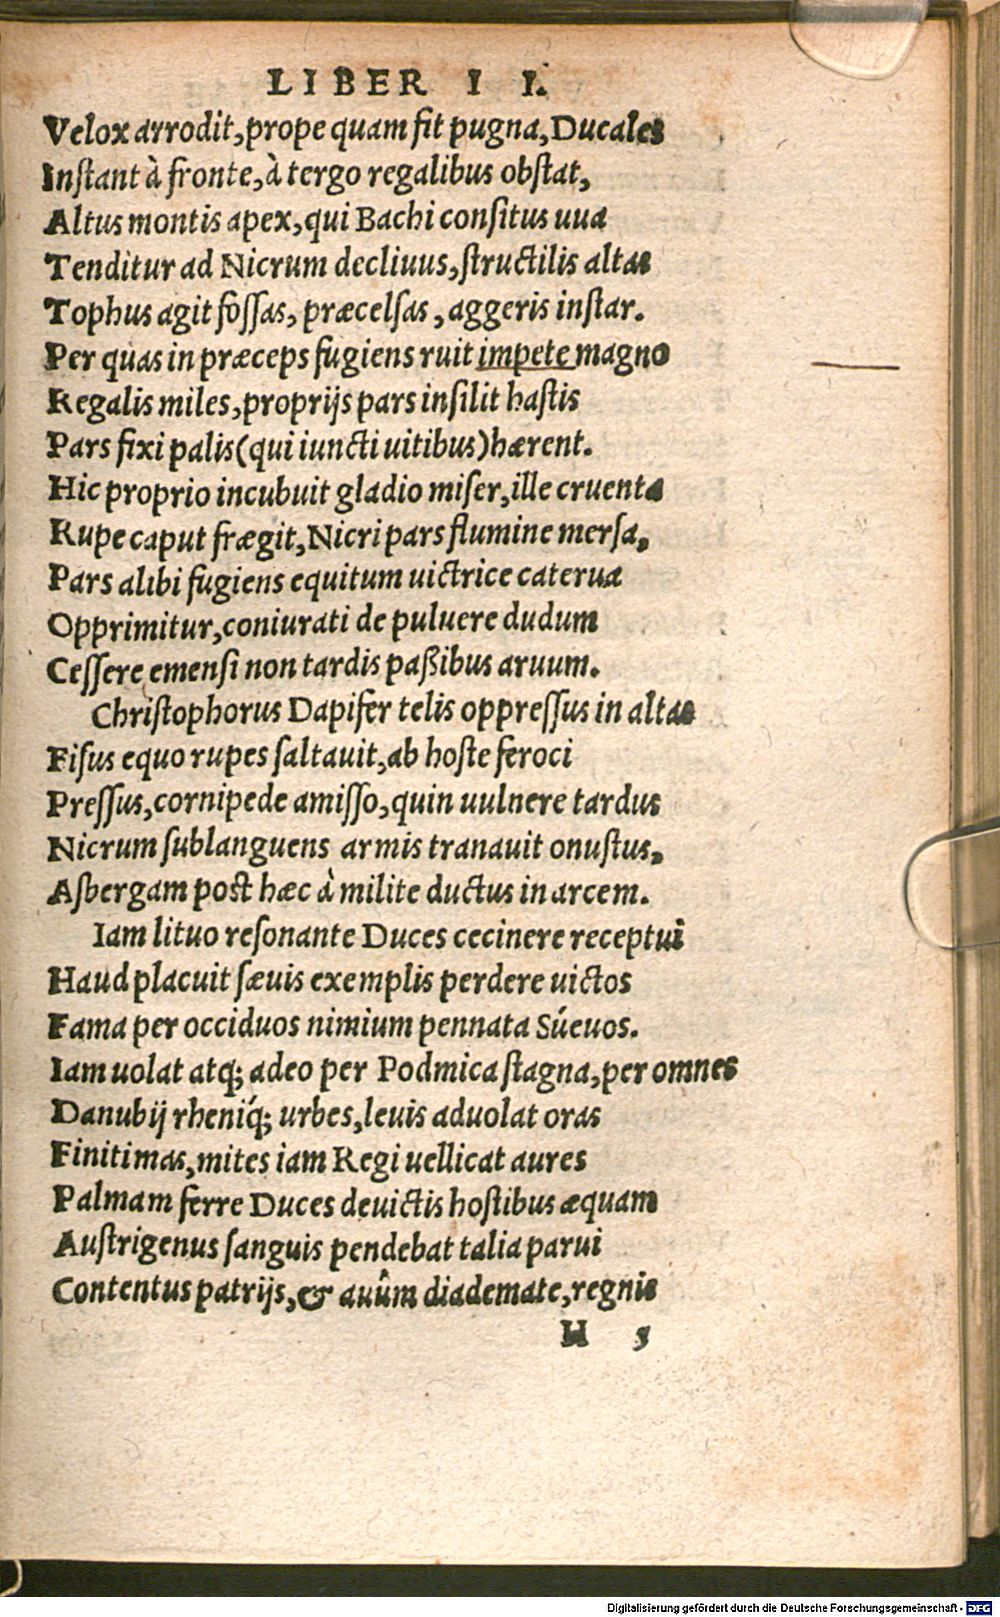 LIBER II.
Velox arrodit, prope quam fit pugna, Ducales
Inſtant à fronte, à tergo regalibus obſtat,
Altus montis apex, qui Bachi conſitus uua
Tenditur ad Nicrum decliuus, ſtructilis altas
Tophus agit foſſas, præcelſas, aggeris inſtar.
Per quas in præceps fugiens ruit impete magno
Regalis miles, proprijs pars inſilit haſtis
Pars fixi palis (qui iuncti uitibus) hærent.
Hic proprio incubuit gladio miſer, ille cruenta
Rupe caput frægit, Nicri pars flumine merſa,
Pars alibi fugiens equitum uictrice caterua
Opprimitur, coniurati de puluere dudum
Ceſſere emenſi non tardis paßibus aruum.
Chriſtophorus Dapifer telis oppreſſus in altas
Fiſus equo rupes ſaltauit, ab hoſte feroci
Preſſus, cornipede amiſſo, quin uulnere tardus
Nicrum ſublanguens armis tranauit onuſtus,
Aſbergam poſt hæc à milite ductus in arcem.
Iam lituo reſonante Duces cecinere receptui
Haud placuit ſæuis exemplis perdere uictos
Fama per occiduos nimium pennata Súeuos.
Iam uolat atq; adeo per Podmica ſtagna, per omnes
Danubij rheniq́; urbes, leuis aduolat oras
Finitimas, mites iam Regi uellicat aures
Palmam ferre Duces deuictis hoſtibus æquam
Auſtrigenus ſanguis pendebat talia parui
Contentus patrijs, & auûm diademate, regnis
H 5
Digitalisierung gefördert durch die Deutsche Forschungsgemeinschaft - DFG